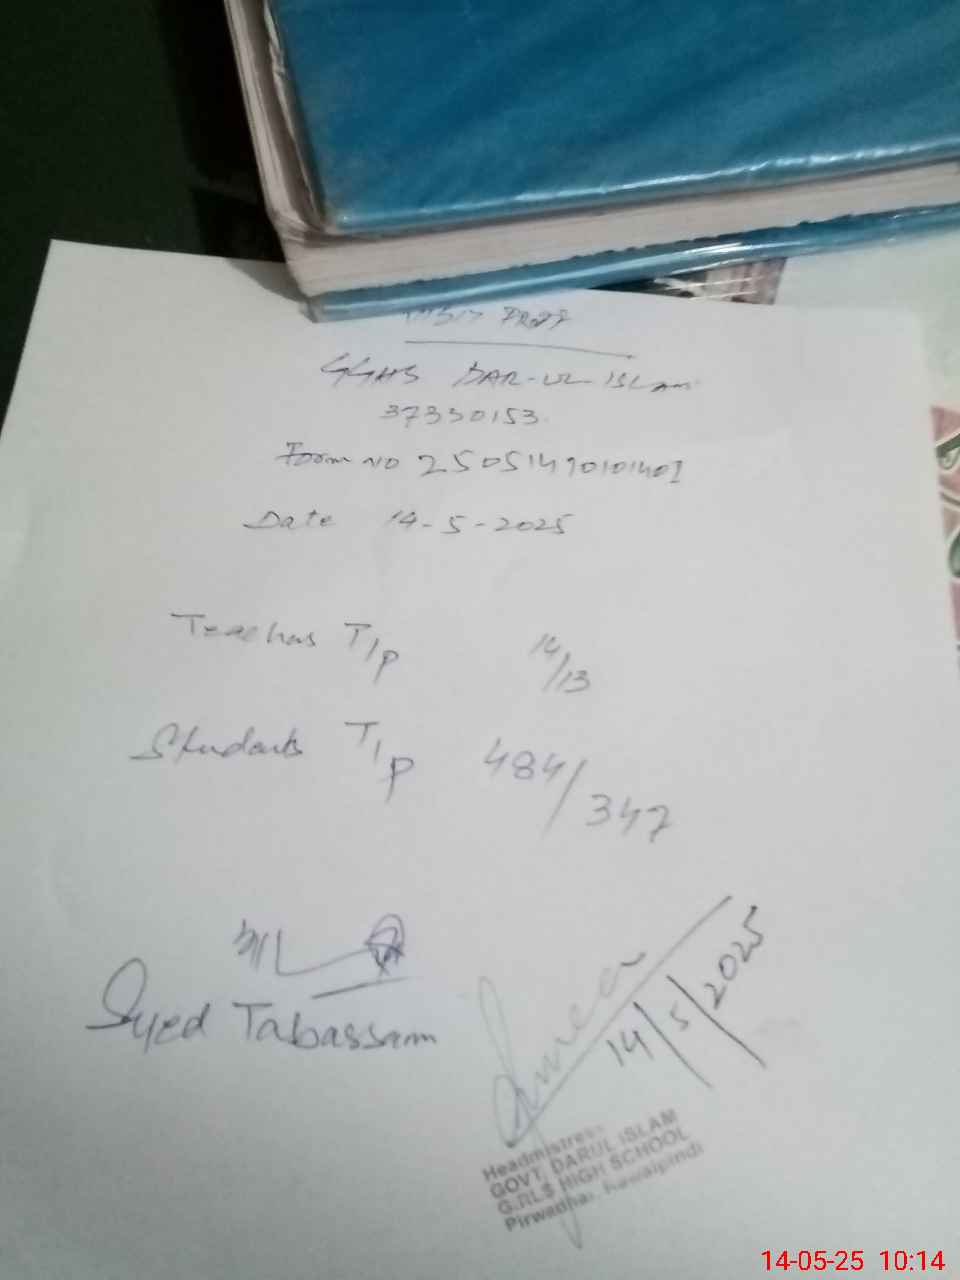 VISIT PROOF
GGHS DAR-UL-ISLAM
37330153.
Form NO 2505149010140
Date 14-5-2025
Teachers T/P 14/13
Students T/P 484/347
Syed Tabassam
14/5/2025
Headmistress
GOVT. DARUL ISLAM
GIRLS HIGH SCHOOL
Pirwadhai Rawalpindi
14-05-25 10:14